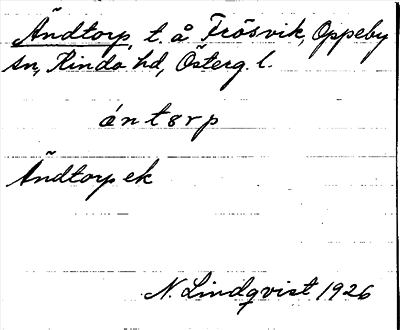 Ändtorp, t. å Frösvik, Oppeby
sn, Kinda hd, Österg. l.
ántɵrp
Ändtorp ek
N. Lindqvist 1926